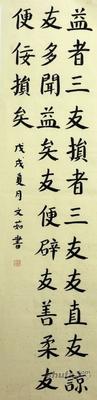 益者三友損者三友友直友諒
友多聞益矣友便辟友善柔友
便佞損矣
戊戌夏月文茹書